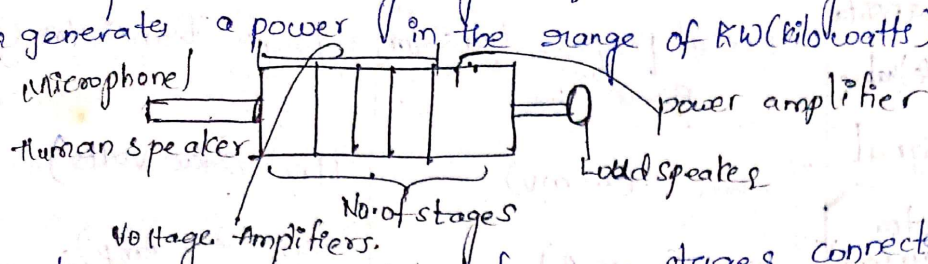 generates a power in the range of KW(kilowatts)
Microphone/
Human speaker
power amplifier
Loud speaker
No. of stages
Voltage Amplifiers.
stages connect